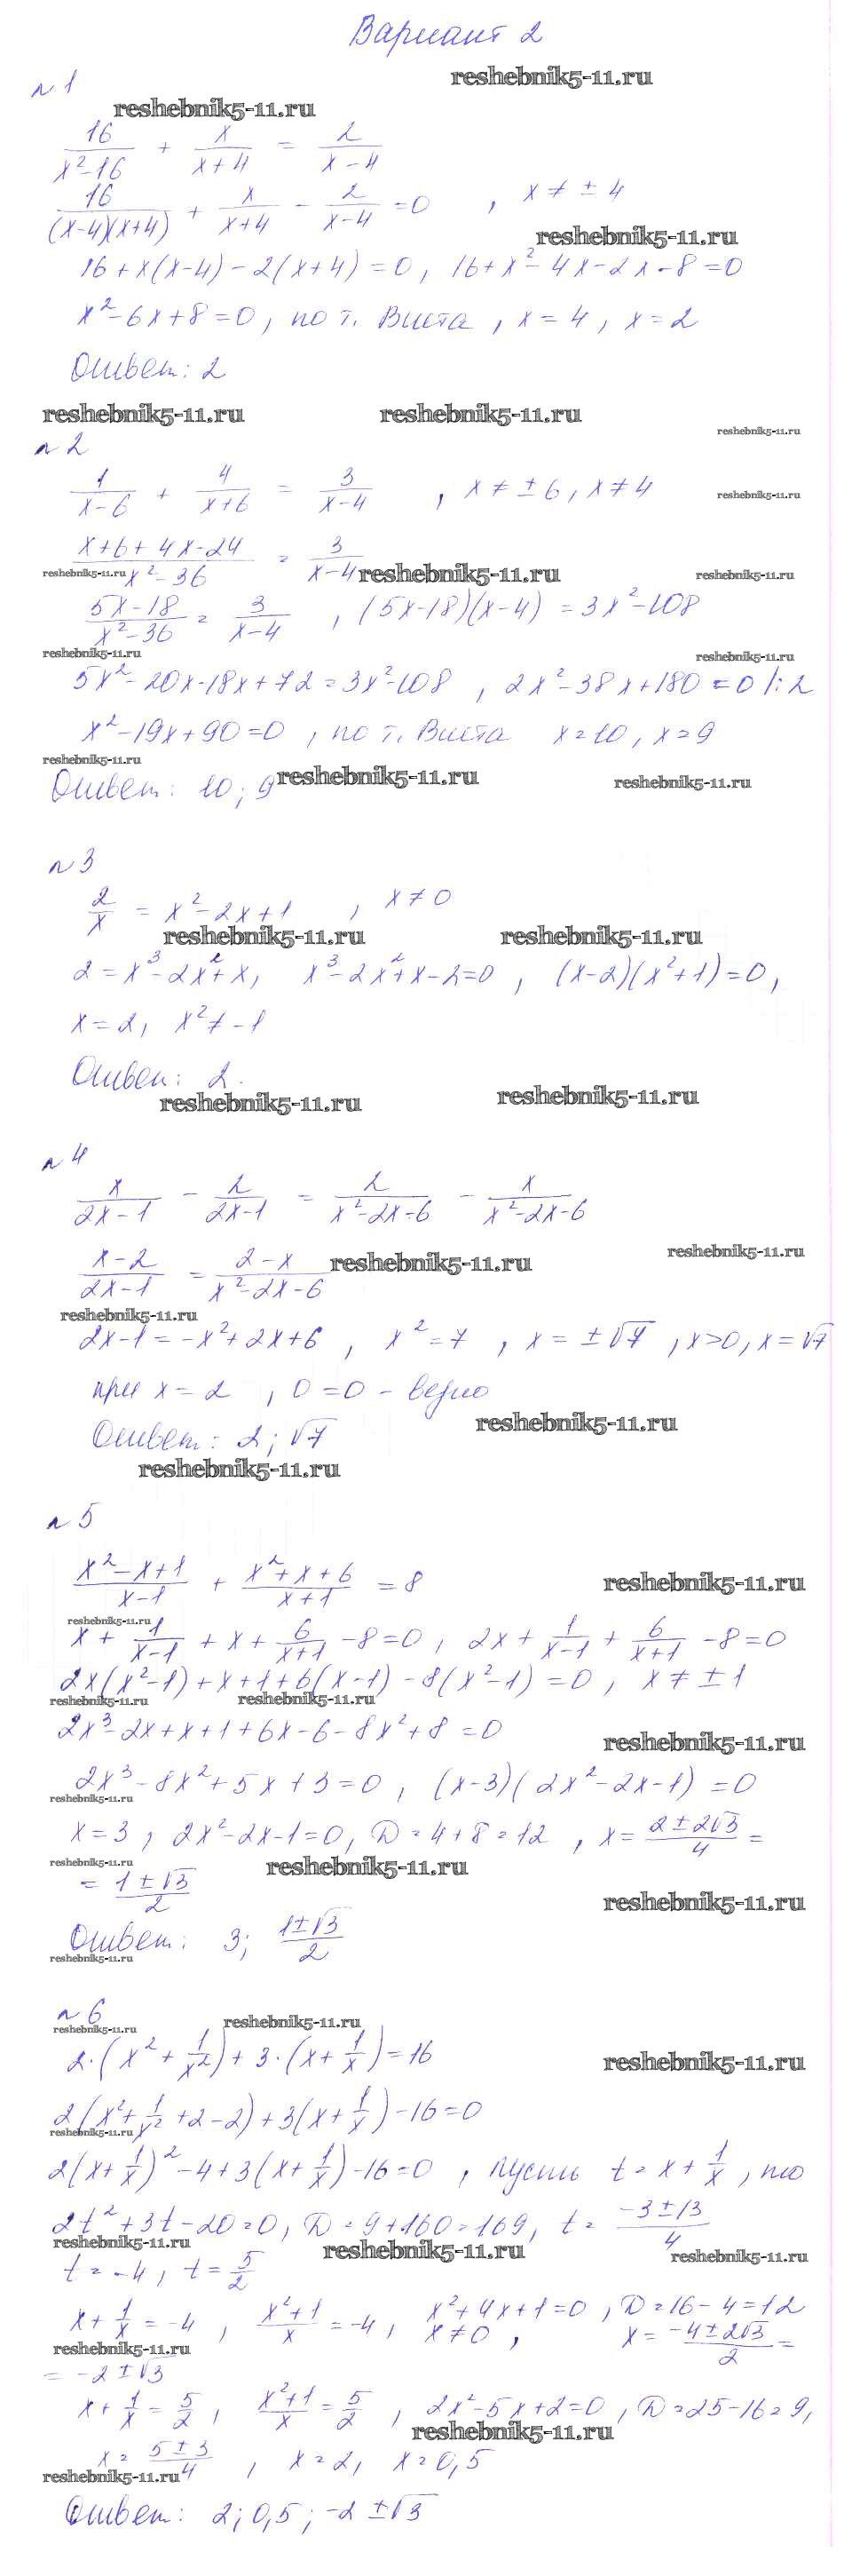 Вариант 2
reshebnik5-11.ru
№1
reshebnik5-11.ru
16/(x²-16) + x/(x+4) = 2/(x-4)
16/((x-4)(x+4)) + x/(x+4) - 2/(x-4) = 0 , x ≠ ± 4
reshebnik5-11.ru
16+x(x-4)-2(x+4)=0, 16+x²-4x-2x-8=0
x²-6x+8=0, по т. Виета, x=4, x=2
Ответ: 2
reshebnik5-11.ru reshebnik5-11.ru
reshebnik5-11.ru
№2
1/(x-6) + 4/(x+6) = 3/(x-4) , x ≠ ±6, x ≠ 4
reshebnik5-11.ru
(x+6+4x-24)/(x²-36) = 3/(x-4)
reshebnik5-11.ru reshebnik5-11.ru reshebnik5-11.ru
(5x-18)/(x²-36) = 3/(x-4) , (5x-18)(x-4) = 3x²-108
reshebnik5-11.ru reshebnik5-11.ru
5x²-20x-18x+72=3x²-108 , 2x²-38x+180=0 |:2
x²-19x+90=0 , по т. Виета x=10, x=9
reshebnik5-11.ru
Ответ: 10; 9
reshebnik5-11.ru reshebnik5-11.ru
№3
2/x = x²-2x+1 , x ≠ 0
reshebnik5-11.ru reshebnik5-11.ru
2=x³-2x²+x, x³-2x²+x-2=0 , (x-2)(x²+1)=0,
x=2, x² ≠ -1
Ответ: 2.
reshebnik5-11.ru reshebnik5-11.ru
№4
x/(2x-1) - 2/(2x-1) = 2/(x²-2x-6) - x/(x²-2x-6)
(x-2)/(2x-1) = (2-x)/(x²-2x-6)
reshebnik5-11.ru reshebnik5-11.ru
reshebnik5-11.ru
2x-1=-x²+2x+6 , x²=7 , x=±√7 , x>0, x=√7
при x=2 , 0=0 - верно
Ответ: 2; √7
reshebnik5-11.ru
reshebnik5-11.ru
№5
(x²-x+1)/(x-1) + (x²+x+6)/(x+1) = 8
reshebnik5-11.ru
reshebnik5-11.ru
x + 1/(x-1) + x + 6/(x+1) - 8=0, 2x + 1/(x-1) + 6/(x+1) - 8=0
2x(x²-1)+x+1+6(x-1)-8(x²-1)=0, x ≠ ±1
reshebnik5-11.ru reshebnik5-11.ru
2x³-2x+x+1+6x-6-8x²+8=0
reshebnik5-11.ru
2x³-8x²+5x+3=0, (x-3)(2x²-2x-1)=0
reshebnik5-11.ru
x=3, 2x²-2x-1=0, D=4+8=12 , x= (2±2√3)/4 =
reshebnik5-11.ru reshebnik5-11.ru
= (1±√3)/2
reshebnik5-11.ru
Ответ: 3; (1±√3)/2
reshebnik5-11.ru
№6
reshebnik5-11.ru reshebnik5-11.ru
2·(x²+1/x²)+3·(x+1/x)=16
reshebnik5-11.ru
2(x²+1/x²+2-2)+3(x+1/x)-16=0
reshebnik5-11.ru
2(x+1/x)²-4+3(x+1/x)-16=0 , пусть t=x+1/x, то
2t²+3t-20=0, D=9+160=169, t= (-3±13)/4
reshebnik5-11.ru reshebnik5-11.ru reshebnik5-11.ru
t=-4, t=5/2
x+1/x=-4 , (x²+1)/x=-4, x²+4x+1=0 , D=16-4=12
x≠0 , x= (-4±2√3)/2 =
reshebnik5-11.ru
= -2±√3
x+1/x=5/2 , (x²+1)/x=5/2 , 2x²-5x+2=0 , D=25-16=9,
reshebnik5-11.ru
x= (5±3)/4 , x=2, x=0,5
reshebnik5-11.ru
Ответ: 2; 0,5; -2±√3